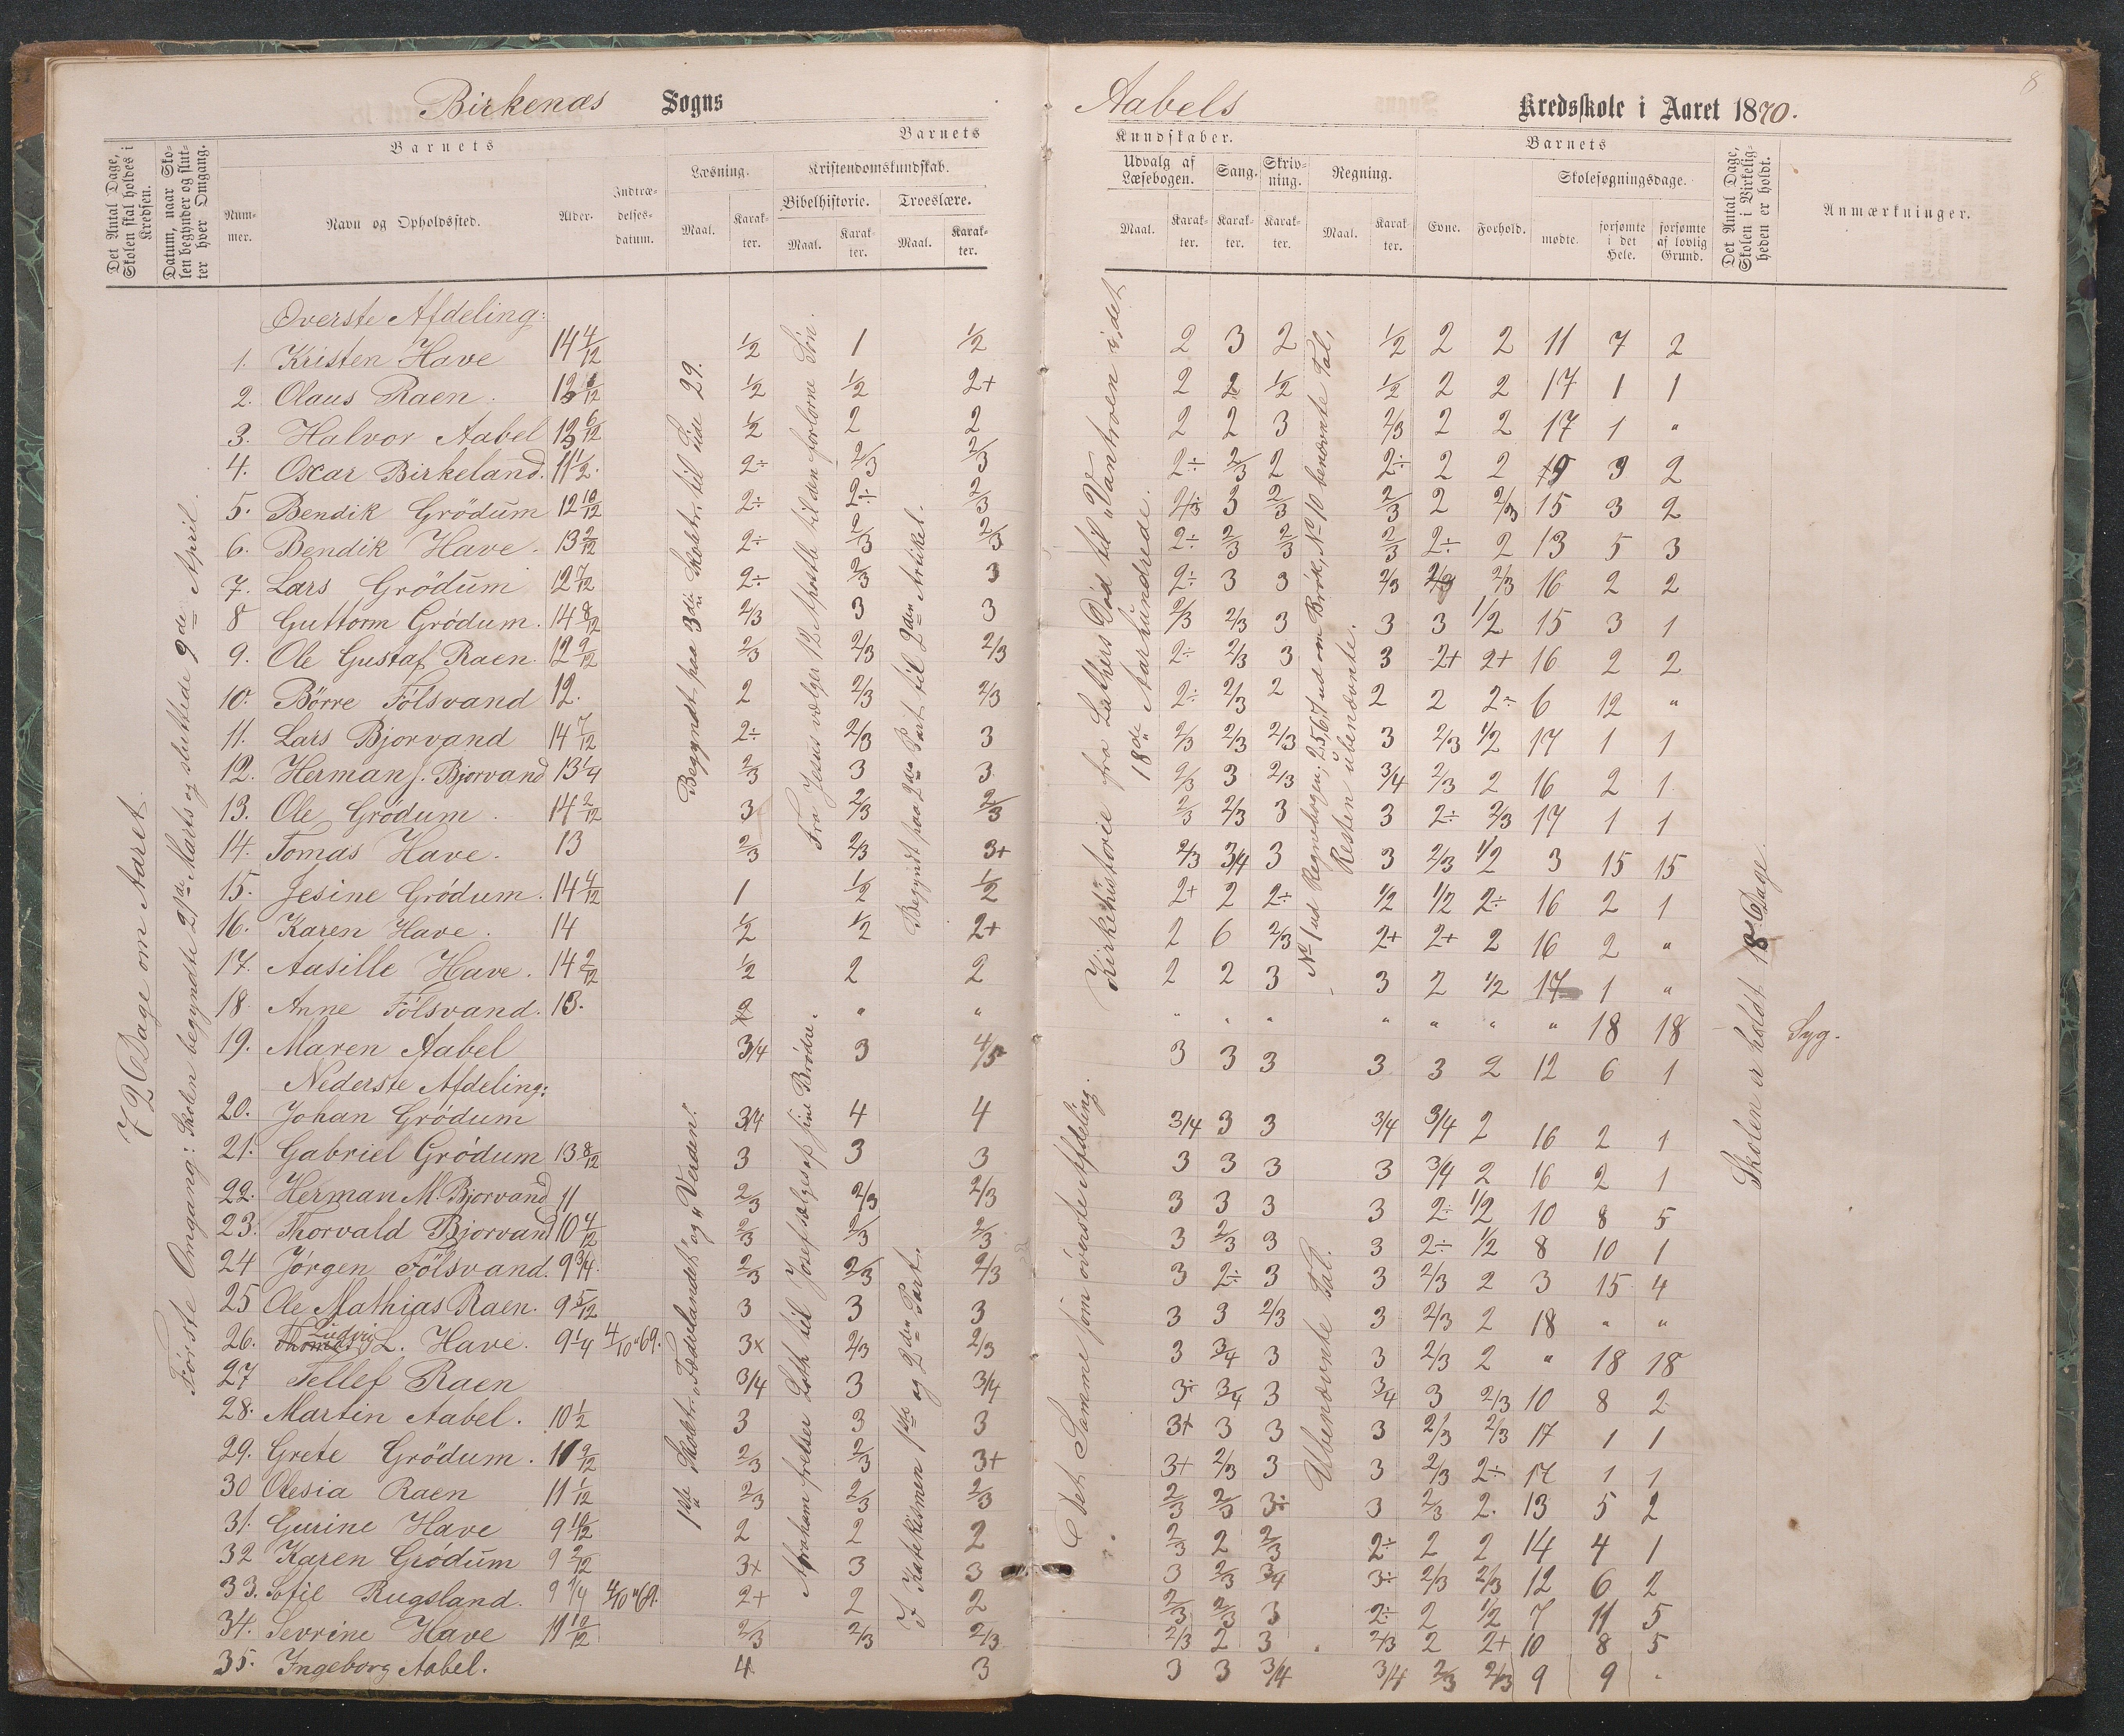 Birkenæs Sogns
Aabels Kredsskole i Aaret 1870.
8
Det Antal Dage, Skolen skal holdes i Kredsen.
Datum, naar Skolen begynder og slutter hver Omgang.
Barnets
Nummer.
Navn og Opholdssted.
Alder.
Indtrædelsesdatum.
Barnets
Læsning.
Maal.
Karakter.
Kristendomskundskab.
Bibelhistorie.
Maal.
Karakter.
Troeslære.
Maal.
Karakter.
Kundskaber.
Udvalg af Læsebogen.
Maal.
Karakter.
Sang.
Karakter.
Skrivning.
Karakter.
Regning.
Maal.
Karakter.
Barnets
Evne.
Forhold.
Skolesøgningsdage.
mødte.
forsømte i det Hele.
forsømte af lovlig Grund.
Det Antal Dage, Skolen i Virkeligheden er holdt.
Anmærkninger.
72 Dage om Aaret.
Første Omgang: Skolen begyndte 21de Marts og sluttede 9de April.
Begyndt paa 3die Skoletr. til Side 29.
Fra Jesus vælger 12 Apostle til den fortorne Søn.
Begyndt paa 2den Part til 2den Artikel.
Kirkehistorie fra Luthers Død til "Vantroen i det
18de Aarhundrede.
No 1 ud Regnebogen; 2567 ud om Brøk, No 10 benævnte Tal,
Resten ubenævnte.
Skolen er holdt 18 Dage.
Øverste Afdeling:
1. Kristen Have 14 4/12 1/2 1 1/2 2 3 2 1/2 2 2 11 7 2
2. Olaus Raen. 1/2 1/2 2+ 2 2 1/2 1/2 2 2 17 1 1
3. Halvor Aabel 1/2 2 2 2 2 3 2/3 2 2 17 1 "
4. Oscar Birkeland. 11 1/2. 2÷ 2/3 2/3 2÷ 2/3 2 2÷ 2 2 3 2
5. Bendik Grödum 12 10/12 2÷ 2÷ 2/3 3 2/3 2/3 2 2/3 15 3 2
6. Bendik Have. 13 2/12 2÷ 2/3 2/3 2÷ 2/3 2/3 2/3 2÷ 2 13 5 3
7. Lars Grödum 12 7/12 2÷ 2/3 3 2÷ 3 3 2/3 2/3 2/3 16 2 2
8 Guttorm Grödum. 14 8/12 2/3 3 3 2/3 2/3 3 3 3 1/2 15 3 1
9. Ole Gustaf Raen. 12 9/12 2/3 2/3 2/3 2÷ 2/3 3 3 2+ 2+ 16 2 2
10. Börre Fölsvand 12. 2 2/3 2/3 2÷ 2/3 2 2 2 2÷ 6 12 "
11. Lars Bjorvand 14 7/12 2÷ 2/3 3 2/3 2/3 2/3 3 2/3 1/2 17 1 1
12. Herman J. Bjorvand 13 1/4 2/3 3 3 2/3 3 2/3 3/4 2/3 2 16 2 1
13. Ole Grödum 14 2/12 3 2/3 2/3 2/3 2/3 3 3 2÷ 2/3 17 1 1
14. Tomas Have. 13 2/3 2/3 3+ 2/3 3/4 3 3 2/3 1/2 3 15 15
15. Jesine Grödum. 14 4/12 1 1/2 1/2 2+ 2 2÷ 1/2 1/2 2÷ 16 2 1
16. Karen Have. 14 1/2 1/2 2+ 2 6 2/3 2+ 2+ 2 16 2 "
17. Aasille Have. 14 2/12 1/2 2 2 2 2 3 3 2 1/2 17 1 "
18. Anne Fölsvand. 13. " " " " " " " " " 18 18 Syg.
19. Maren Aabel 3/4 3 4/5 3 3 3 3 3 2 12 6 1
Nederste Afdeling:
1ste Skoletr. "Fædrelandet" og "Verden".
Abraham frelser Loth til Josef sælges af sine Brødre.
I Katekismen 1ste og 2den Part.
Det Samme som øverste Afdeling.
Ubenævnte Tal.
20. Johan Grödum 3/4 4 4 3/4 3 3 3/4 3/4 2 16 2 1
21. Gabriel Grödum 13 8/12 3 3 3 3 3 3 3 3/4 2 16 2 1
22. Herman M. Bjorvand 11 2/3 2/3 2/3 3 3 3 3 2÷ 1/2 10 8 5
23. Thorvald Bjorvand 10 4/12 2/3 2/3 2/3 3 2/3 3 3 2÷ 1/2 8 10 1
24 Jörgen Fölsvand. 9 3/4. 2/3 2/3 2/3 3 2÷ 3 3 2/3 2 3 15 4
25 Ole Mathias Raen. 9 5/12 3 3 3 3 3 2/3 3 2/3 2 18 " "
26. Ludvig L. Have. 9 1/4 4/10 "69. 3x 2/3 2/3 3 3/4 3 3 2/3 2 " 18 18
27 Tellef Raen 3/4 3 3/4 3÷ 3/4 3 3/4 3 2/3 10 8 2
28. Martin Aabel. 10 1/2 3 3 3 3+ 3 3 3 2/3 2/3 17 1 1
29. Grete Grödum. 2/3 2/3 3+ 3+ 2/3 3 3 2/3 2÷ 17 1 1
30 Olesia Raen 11 1/12 2/3 2/3 2/3 2/3 2/3 3÷ 3 2/3 2. 13 5 2
31. Gurine Have 9 10/12 2 2 2 2/3 2 2/3 2÷ 2 2 14 4 1
32 Karen Grödum 9 2/12 3x 3 3 3 2/3 3/4 3÷ 2/3 2/3 12 6 2
33. Sofie Rugsland. 9 1/4 4/10 "69. 2+ 2 2 2/3 2/3 3 2÷ 2 1/2 7 11 5
34. Sevrine Have 11 10/12 2/3 2/3 2/3 2/3 2 3 2/3 2 2+ 10 8 5
35. Ingeborg Aabel. 4 3 3 3 3/4 3/4 2/3 2/3 9 9 "